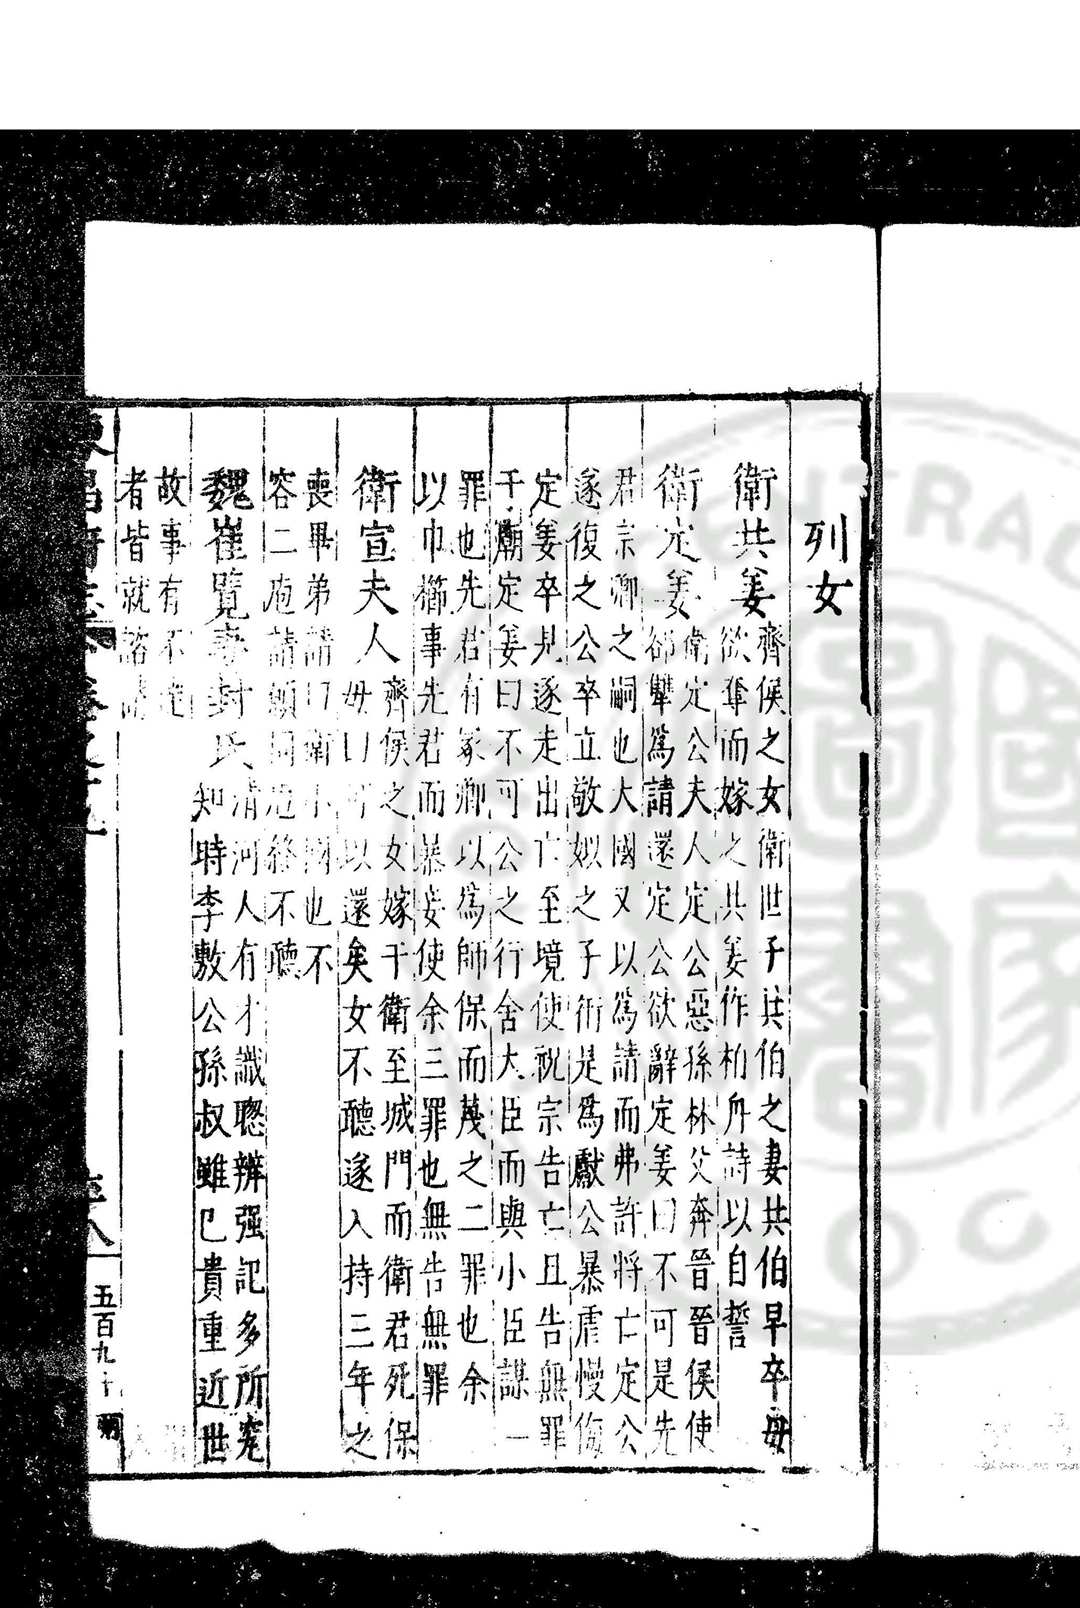 列女
衛共姜
齊侯之女衛世子共伯之妻共伯早卒母
欲奪而嫁之共姜作柏舟詩以自誓
衛定姜
衛定公夫人定公惡孫林父奔晉晉侯使
郤犨爲請還定公欲辭定姜曰不可是先
君宗卿之嗣也大國又以爲請而弗許將亡定公
遂復之公卒立敬姒之子衎是爲獻公暴虐慢侮
定姜卒見逐走出亡至境使祝宗告亡且告無罪
于廟定姜曰不可公之行舍大臣而與小臣謀一
罪也先君有冢卿以爲師保而蔑之二罪也余
以巾櫛事先君而暴妾使余三罪也無告無罪
衛宣夫人
齊侯之女嫁于衛至城門而衛君死保
母曰可以還矣女不聽遂入持三年之
喪畢弟請曰衛小國也不
容二庖請願同庖終不聽
魏崔覽妻封氏
清河人有才識聰辨强記多所究
知時李敷公孫叔雖已貴重近世
故事有不達
者皆就諮
卷之
五百九十